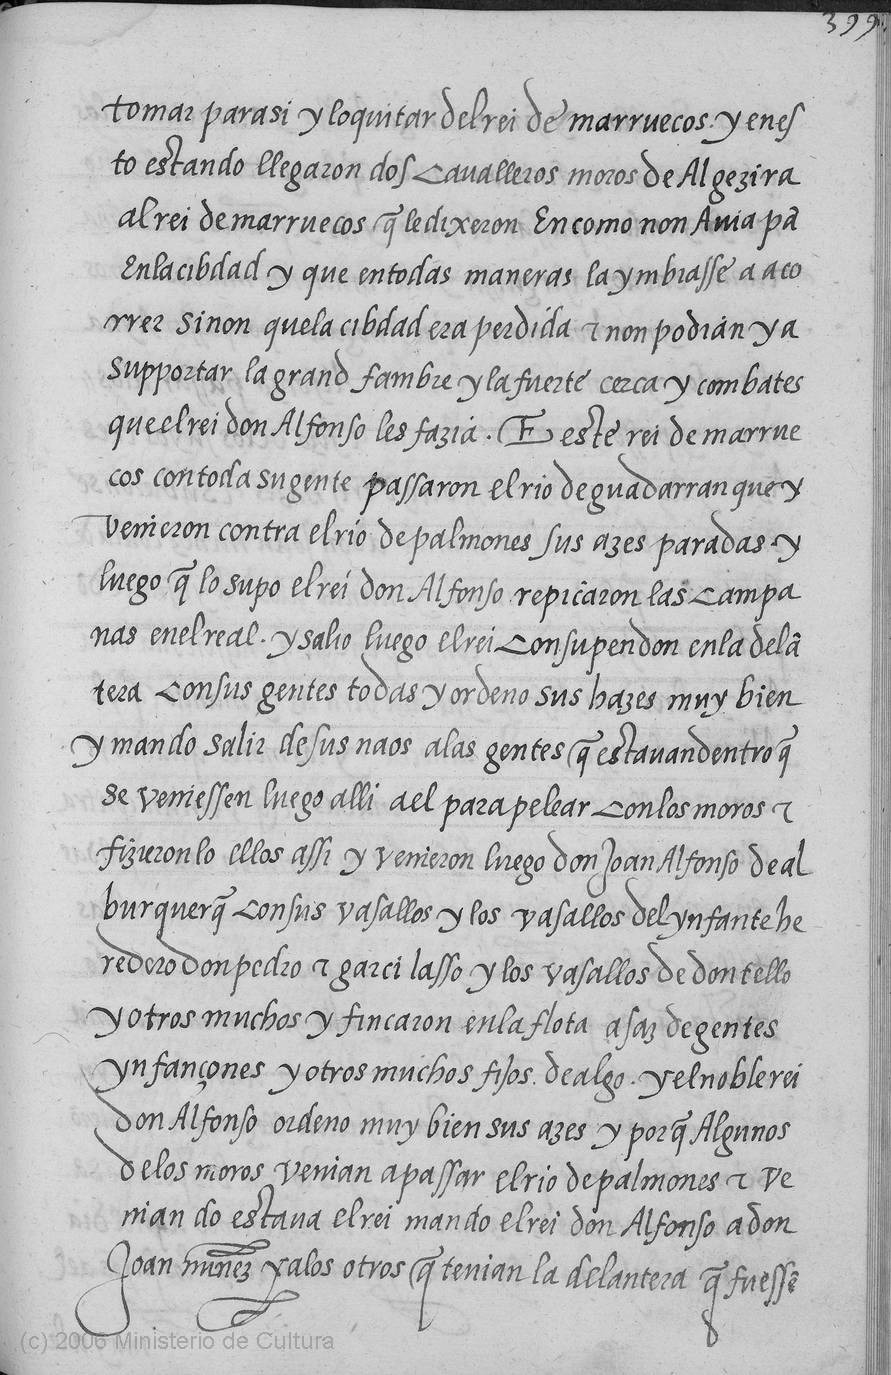 399
tomar parasi y loquitar del rei de marruecos. y enes
to estando llegaron dos cavalleros moros de Algezira
al rei de marruecos q̃ le dixeron En como non Auia pã
En la cibdad y que en todas maneras la ymbiasse a aco
rrer sinon que la cibdad era perdida ⁊ non podian ya
supportar la grand fambre y la fuerte cerca y combates
que el rei don Alfonso les fazia. E este rei de marrue
cos con toda su gente passaron el rio de guadarranque y
venieron contra el rio de palmones sus azes paradas. y
luego q̃ lo supo el rei don Alfonso repicaron las campa
nas en el real. y salio luego el rei con su pendon en la delã
tera con sus gentes todas y ordeno sus hazes muy bien
y mando salir de sus naos a las gentes q̃ estauan dentro q̃
se veniessen luego alli a el para pelear con los moros ⁊
fizieron lo ellos assi y venieron luego don Joan Alfonso de al
burquerq̃ con sus vasallos y los vasallos del ynfante he
redero don pedro ⁊ garci lasso y los vasallos de don tello
y otros muchos y fincaron en la flota asaz de gentes
ynfançones y otros muchos fijos. de algo. y el noble rei
don Alfonso ordeno muy bien sus azes y porq̃ Algunos
de los moros venian a passar el rio de palmones ⁊ ve
nian do estaua el rei mando el rei don Alfonso a don
Joan nuñez y a los otros q̃ tenian la delantera q̃ fuessẽ
(c) 2006 Ministerio de Cultura